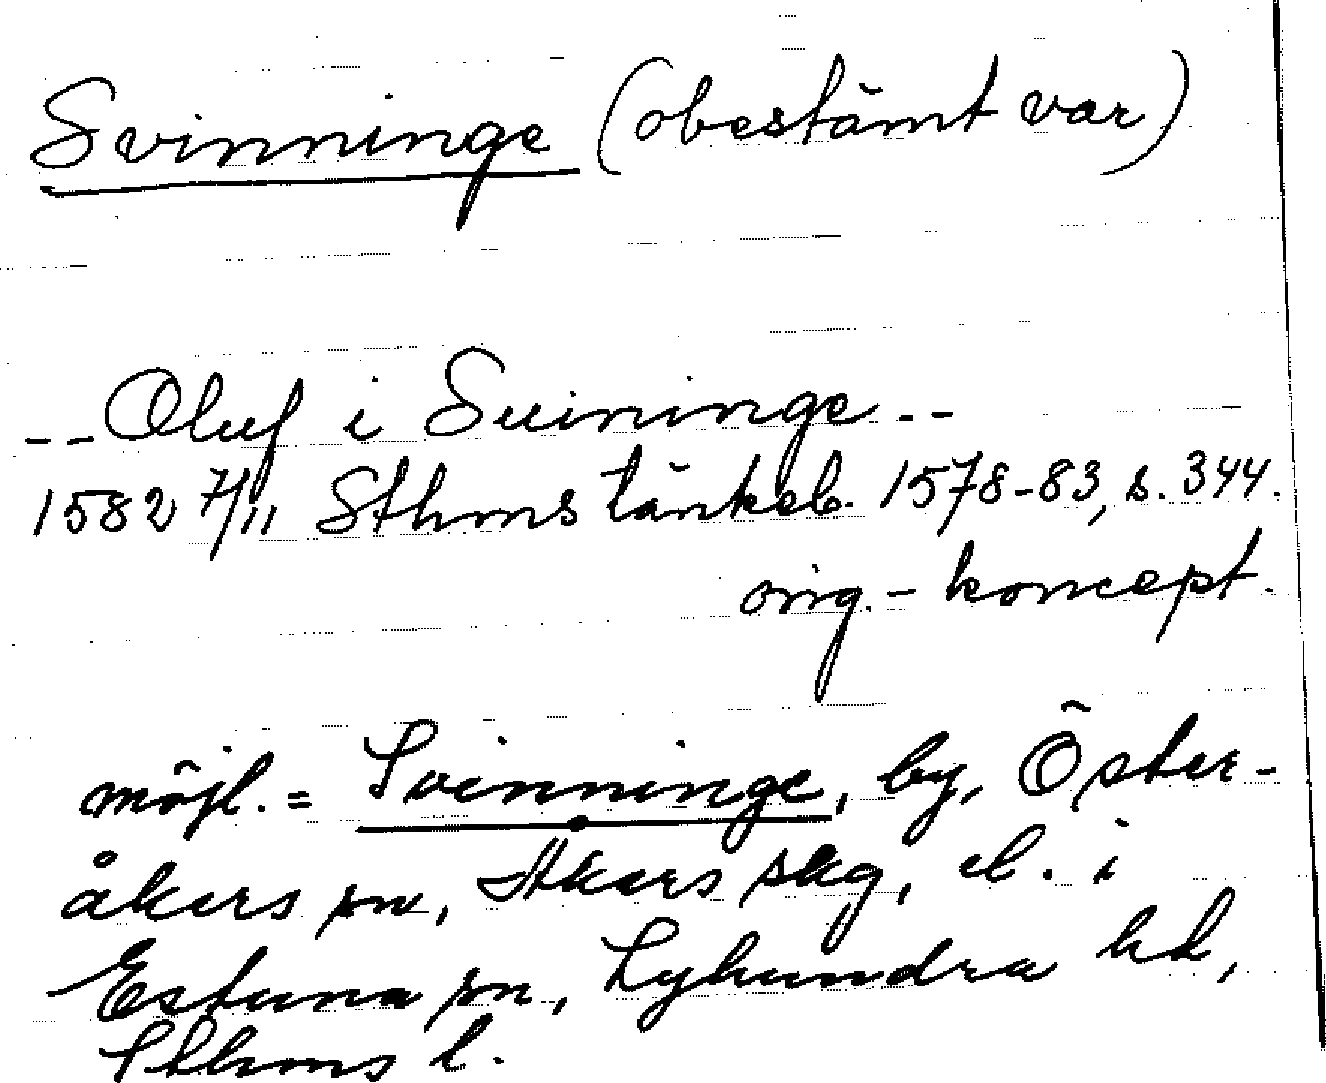 Svinninge (obestämt var)
-- Oluf i Suininge --
1582 7/11 Sthms tänkeb. 1578-83, s. 344.
orig.-koncept.
möjl. = Svinninge, by, Öster-
åkers sn, Åkers skg, el. i
Estuna sn, Lyhundra hd,
Sthms l.